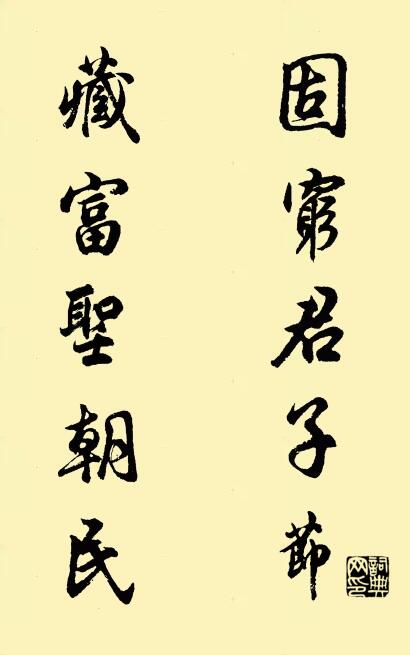 固窮君子節
藏富聖朝民
詞典网印